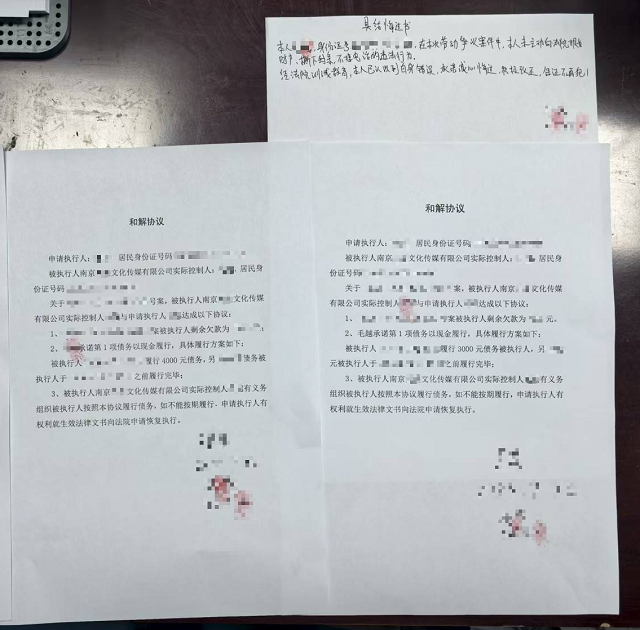 具结悔过书
本人 身份证号 在本次劳动争议案件中,本人未主动向法院报告
财产、 不接电话的违法行为。
经法院训诫教育,本人已认识到自身错误,承诺诚心悔过, 保证不再犯!
和解协议
申请执行人: 居民身份证号码
被执行人南京 文化传媒有限公司实际控制人: 居民身
份证号码
关于 号案,被执行人南京 文化传媒
有限公司实际控制人 与申请执行人 达成以下协议:
1、 被执行人剩余欠款为
2、 承诺第 1 项债务以现金履行,具体履行方案如下:
被执行人 履行 4000 元债务,另 债务被
执行人于 之前履行完毕;
3、被执行人南京 文化传媒有限公司实际控制人 有义务
组织被执行人按照本协议履行债务,如不能按期履行,申请执行人有
权利就生效法律文书向法院申请恢复执行。
和解协议
申请执行人: 居民身份证号码
被执行人南京 文化传媒有限公司实际控制人: 居民
身份证号码
关于 案,被执行人南京 文化传媒
有限公司实际控制 与申请执行人 达成以下协议:
1、 号案被执行人剩余欠款为 元。
2、毛越承诺第 1 项债务以现金履行,具体履行方案如下:
被执行人 履行 3000 元债务被执行人,另
元被执行人于 之前履行完毕;
3、被执行人南京 文化传媒有限公司实际控制人 有义务
组织被执行人按照本协议履行债务,如不能按期履行,申请执行人有
权利就生效法律文书向法院申请恢复执行。